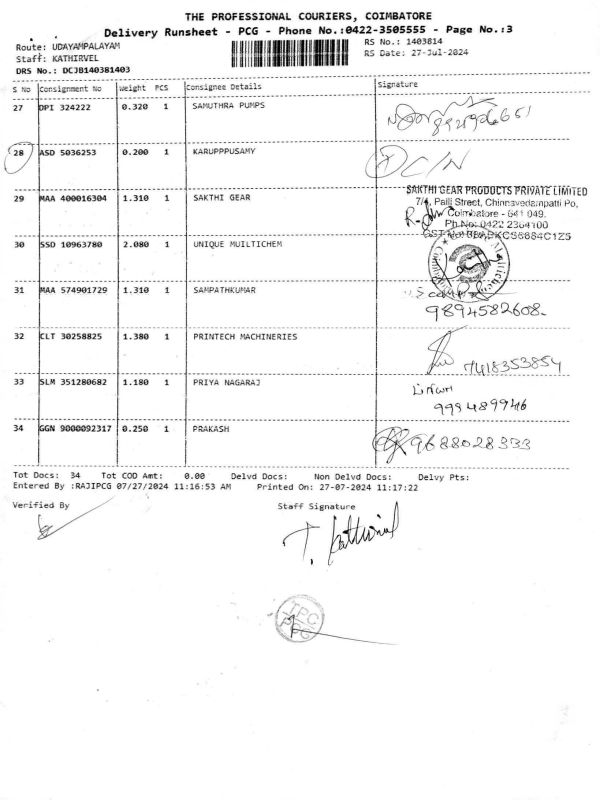 THE PROFESSIONAL COURIERS, COIMBATORE
Delivery Runsheet - PCG - Phone No.:0422-3505555 - Page No.:3
Route: UDAYAMPALAYAM
RS No.: 1403814
Staff: KATHIRVEL
RS Date: 27-Jul-2024
DRS No.: DCJB140381403
S No Consignment No Weight PCS Consignee Details Signature
27 DPI 324222 0.320 1 SAMUTHRA PUMPS
28 ASD 5036253 0.200 1 KARUPPPUSAMY C/N
29 MAA 400016304 1.310 1 SAKTHI GEAR
SAKTHI GEAR PRODUCTS PRIVATE LIMITED
7/4, Palli Street, Chinnavedampatti Po,
Coimbatore - 641 049.
Ph No: 0422 2364100
30 SSD 10963780 2.080 1 UNIQUE MUILTICHEM
31 MAA 574901729 1.310 1 SAMPATHKUMAR
9894582608
32 CLT 30258825 1.380 1 PRINTECH MACHINERIES 7418353854
33 SLM 351280682 1.180 1 PRIYA NAGARAJ
999489946
34 GGN 9000092317 0.250 1 PRAKASH 9688028333
Tot Docs: 34 Tot COD Amt: 0.00 Delvd Docs: Non Delvd Docs: Delvy Pts:
Entered By :RAJIPCG 07/27/2024 11:16:53 AM Printed On: 27-07-2024 11:17:22
Verified By Staff Signature
T. Kathirvel
TPC
PPG